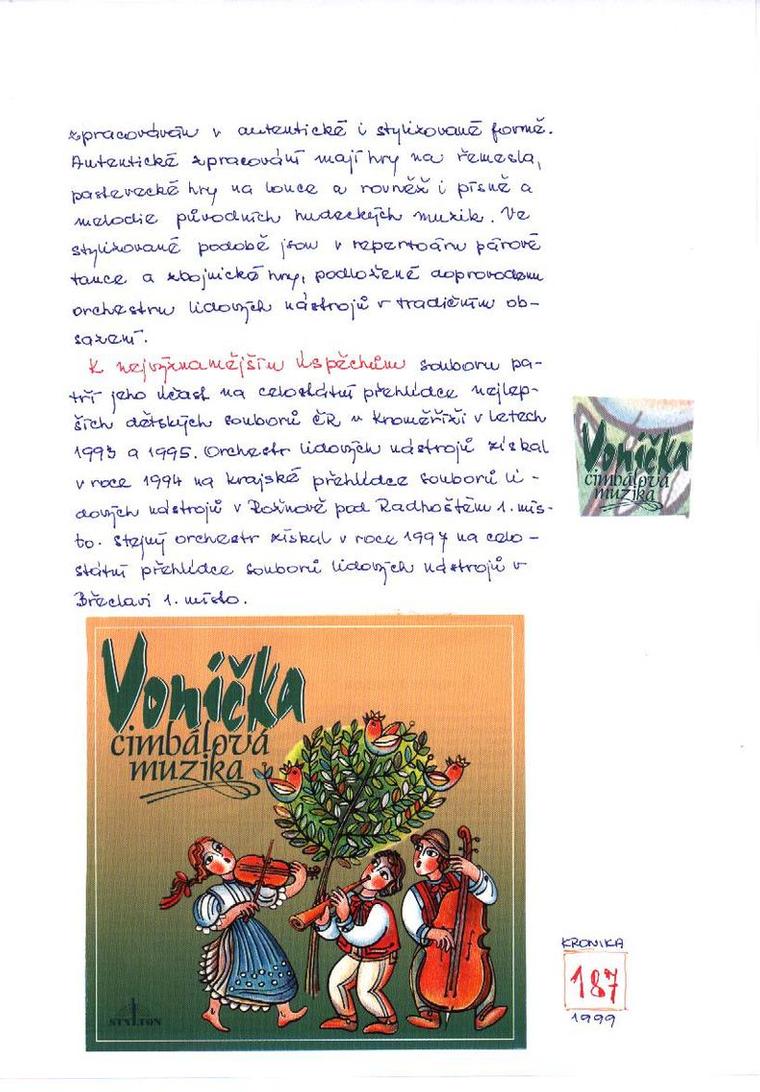 zpracováván v autentické i stylizované formě.
Autentické zpracování mají hry na řemesla,
pastevecké hry na louce a rovněž i písně a
melodie původních hudeckých muzik. Ve
stylizované podobě jsou v repertoáru párové
tance a zbojnické hry, podložené doprovodem
orchestru lidových nástrojů v tradičním ob-
sazení.
K nejvýznamějším úspěchům souboru pa-
tří jeho účast na celostátní přehlídce nejlep-
ších dětských souborů ČR v Kroměříži v letech
1993 a 1995. Orchestr lidových nástrojů získal
v roce 1994 na krajské přehlídce souborů li-
dových nástrojů v Rožnově pod Radhoštěm 1. mís-
to. Stejný orchestr získal v roce 1997 na celo-
státní přehlídce souborů lidových nástrojů v
Břeclavi 1. místo.
Vonička
cimbálová
muzika
Vonička
cimbálová
muzika
STYLTON
KRONIKA
187
1999